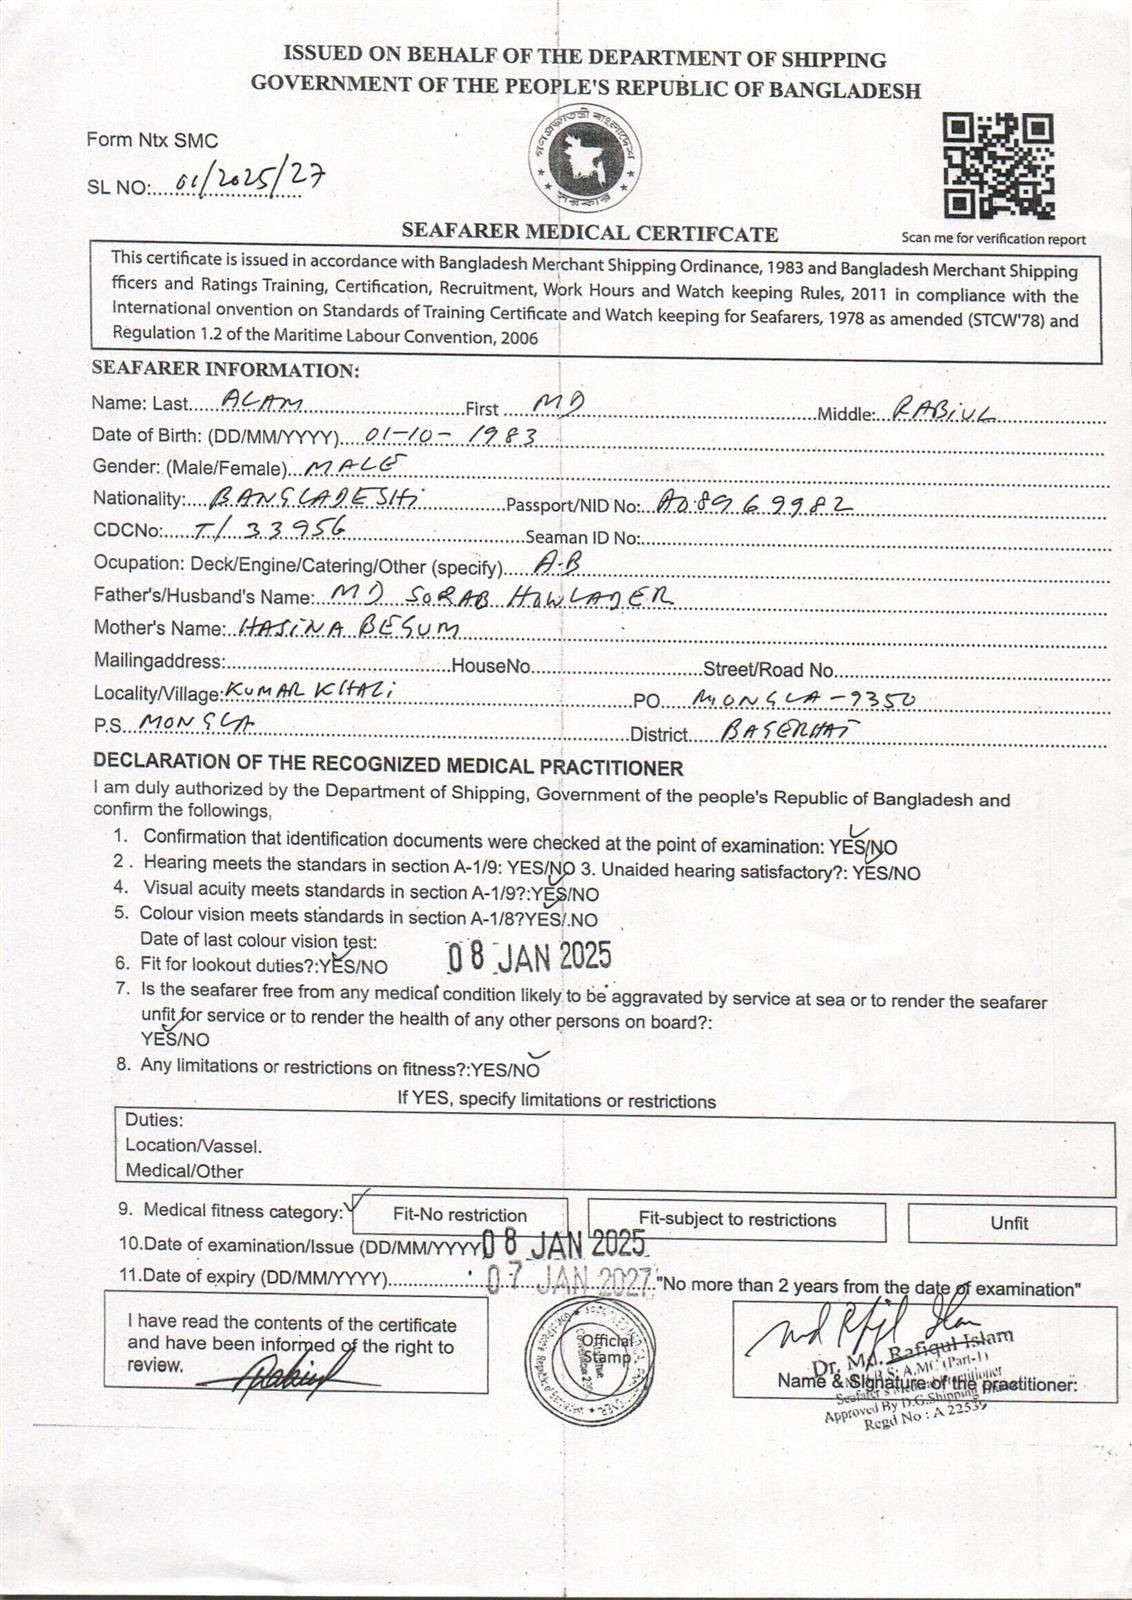 ISSUED ON BEHALF OF THE DEPARTMENT OF SHIPPING
GOVERNMENT OF THE PEOPLE'S REPUBLIC OF BANGLADESH
গণপ্রজাতন্ত্রী বাংলাদেশ
সরকার
Form Ntx SMC
SL NO:...01/2025/27
SEAFARER MEDICAL CERTIFCATE
Scan me for verification report
This certificate is issued in accordance with Bangladesh Merchant Shipping Ordinance, 1983 and Bangladesh Merchant Shipping
fficers and Ratings Training, Certification, Recruitment, Work Hours and Watch keeping Rules, 2011 in compliance with the
International onvention on Standards of Training Certificate and Watch keeping for Seafarers, 1978 as amended (STCW'78) and
Regulation 1.2 of the Maritime Labour Convention, 2006
SEAFARER INFORMATION:
Name: Last....ALAM....First....MD....Middle:..RABIUL
Date of Birth: (DD/MM/YYYY)....01-10-1983
Gender: (Male/Female)...MALE
Nationality:...BANGLADESHi....Passport/NID No:..A08969982
CDCNo:....T/33956....Seaman ID No:
Ocupation: Deck/Engine/Catering/Other (specify)....A-B
Father's/Husband's Name:..MD SORAB HOWLADER
Mother's Name:..HASINA BEGUM
Mailingaddress:....HouseNo....Street/Road No.
Locality/Village:KUMARKHALI....PO...MONGLA-9350
P.S...MONGLA....District....BAGERHAT
DECLARATION OF THE RECOGNIZED MEDICAL PRACTITIONER
I am duly authorized by the Department of Shipping, Government of the people's Republic of Bangladesh and
confirm the followings,
1. Confirmation that identification documents were checked at the point of examination: YES/NO
2 . Hearing meets the standars in section A-1/9: YES/NO 3. Unaided hearing satisfactory?: YES/NO
4. Visual acuity meets standards in section A-1/9?:YES/NO
5. Colour vision meets standards in section A-1/8?YES/.NO
Date of last colour vision test: 08 JAN 2025
6. Fit for lookout duties?:YES/NO
7. Is the seafarer free from any medical condition likely to be aggravated by service at sea or to render the seafarer
unfit for service or to render the health of any other persons on board?:
YES/NO
8. Any limitations or restrictions on fitness?:YES/NO
If YES, specify limitations or restrictions
Duties:
Location/Vassel.
Medical/Other
9. Medical fitness category: Fit-No restriction Fit-subject to restrictions Unfit
10.Date of examination/Issue (DD/MM/YYYY) 08 JAN 2025
11.Date of expiry (DD/MM/YYYY)....07 JAN 2027 "No more than 2 years from the date of examination"
I have read the contents of the certificate
and have been informed of the right to
review.
Rabiul
Official
Stamp
Md Rafiqul Islam
Dr. Md. Rafiqul Islam
A.MC (Part-1)
Name & Signature of the practitioner:
Seafarer's Medical Practitioner
Approved By D.G.Shipping
Regd No : A 22539